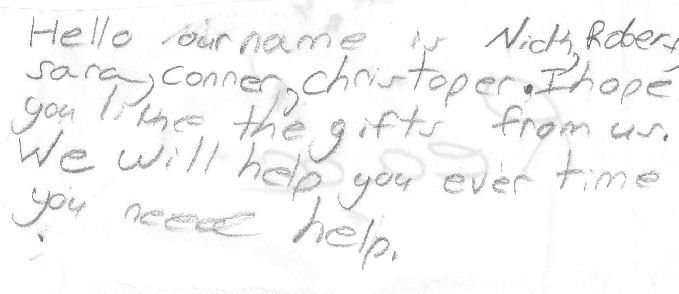 Hello our name is Nick, Robert,
sara, conner, christoper. I hope
you like the gifts from us.
We will help you ever time
you need help.